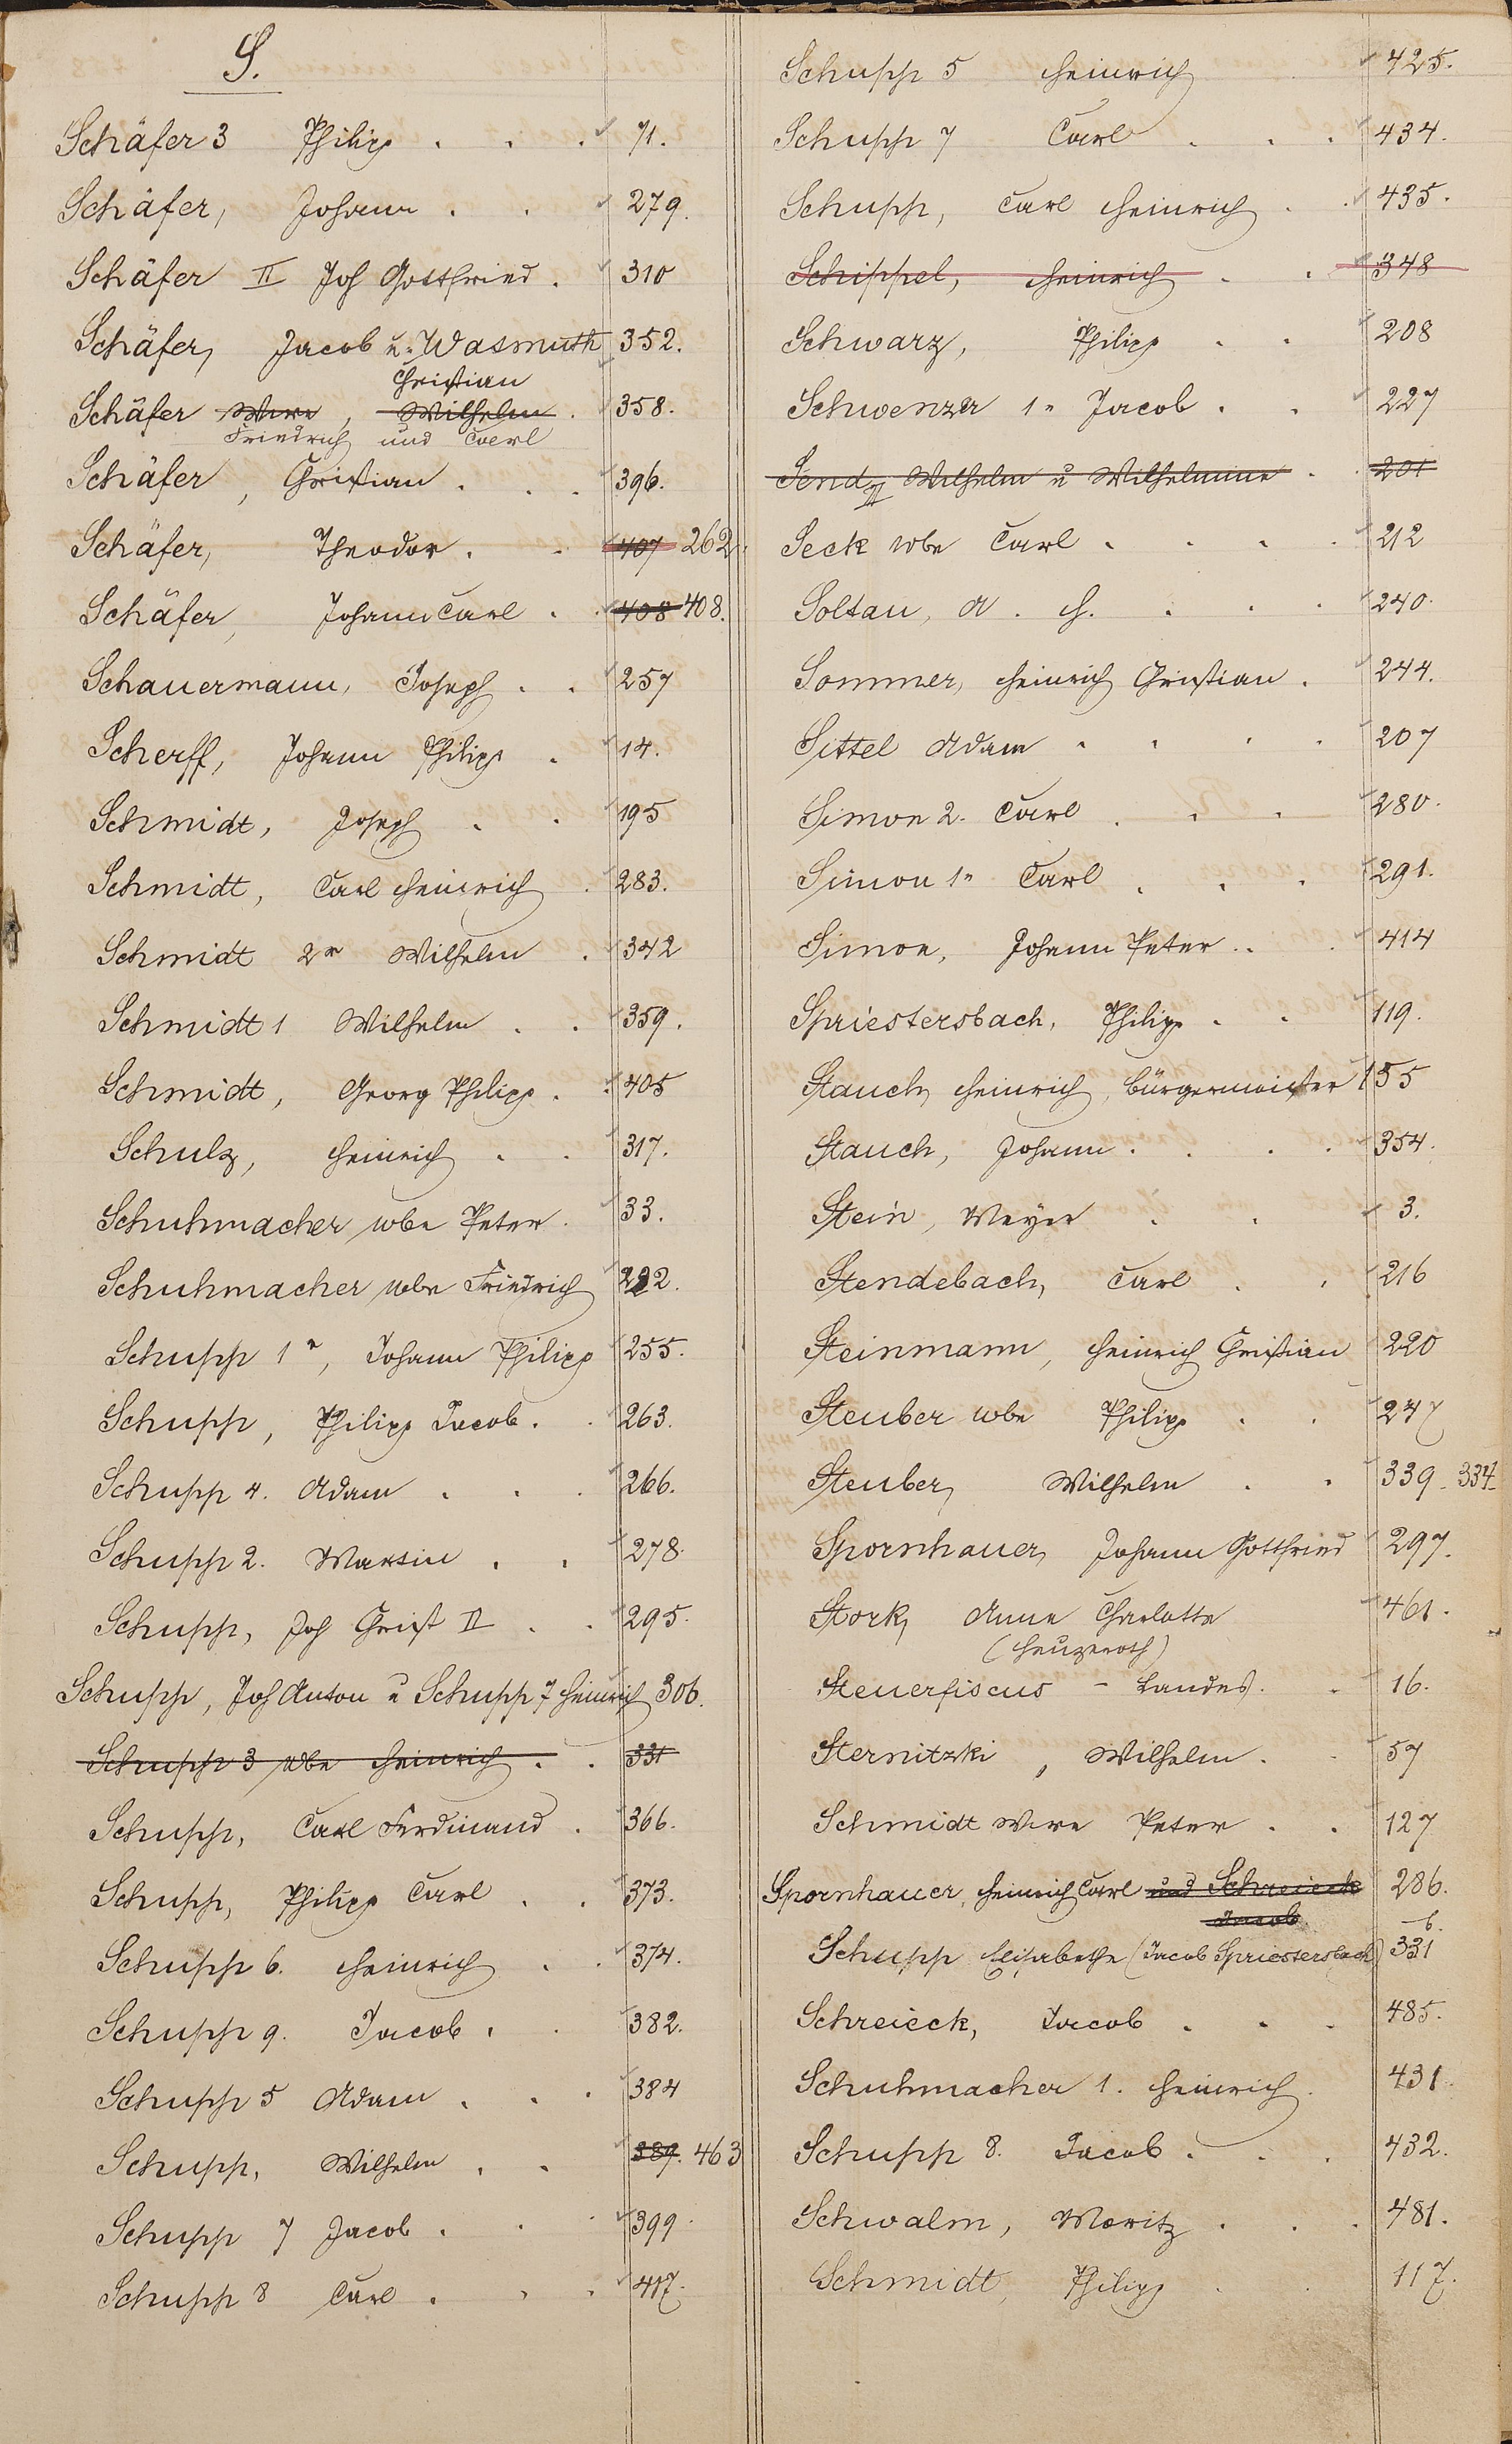 S.
Schäfer 3 Philipp . . . 71.
Schäfer, Johann . . 279.
Schäfer II Joh Gottfried . 310
Schäfer, Jacob u. Wasmuth 352.
Christian
Schäfer Wwe, Wilhelm . 358.
Friedrich und Carl
Schäfer, Christian . . . 396.
Schäfer, Theodor . . 407 262.
Schäfer, Johann Carl . . 408 408.
Schauermann, Joseph . . 257
Scherff, Johann Philipp . 14.
Schmidt, Joseph . . 195
Schmidt, Carl Heinrich . 283.
Schmidt 2r Wilhelm . 342
Schmidt 1 Wilhelm . . 359.
Schmidt, Georg Philipp . . 405
Schulz, Heinrich . . 317.
Schuhmacher wbe Peter . 33.
Schuhmacher wbe Friedrich 222.
Schupp 1r, Johann Philipp 255.
Schupp, Philipp Jacob . . 263.
Schupp 4. Adam . . . 266.
Schupp 2. Martin . . 278.
Schupp, Joh Christ II . . 295.
Schupp, Joh Anton u Schupp 7 Heinrich 306.
Schupp 3 wbe Heinrich . . 331
Schupp, Carl Ferdinand . 366.
Schupp, Philipp Carl . . 373.
Schupp 6. Heinrich . . 374.
Schupp 9. Jacob . . 382.
Schupp 5 Adam . . . 384
Schupp, Wilhelm . . 389. 463
Schupp 7 Jacob . . . 399.
Schupp 8 Carl . . . 417.
Schupp 5 Heinrich 425.
Schupp 7 Carl . . . 434.
Schupp, Carl Heinrich . . 435.
Schippel, Heinrich . . 348
Schwarz, Philipp . . 208
Schwenzer 1r Jacob . . 227
Wilhelm u Wilhelmine . . 201
Seck wbe Carl . . . . 212
Soltau, A. H. . . . 240.
Sommer, Heinrich Christian . 244.
Sittel Adam . . . . 207
Simon 2. Carl . . . 280.
Simon 1r Carl . . . 291.
Simon, Johann Peter . . . 414
Spriestersbach, Philipp . . 119.
Stauch, Heinrich, Bürgermeister 155
Stauch, Johann . . . . 354.
Stein, Meyer . . 3.
Stendebach, Carl . . 216
Steinmann, Heinrich Christian 220
Steuber wbe Philipp . . 247
Steuber, Wilhelm . . 339 - 334
Spornhauer, Johann Gottfried 297.
Stork, Anna Charlotte 461.
(Heuzeroth)
Steuerfiscus - Landes . . 16.
Sternitzki, Wilhelm . . 57
Schmidt Wwe Peter . . 127
Spornhauer, Heinrich Carl und Schreieck 286.
Jacob. b.
Schupp Elisabethe (Jacob Spriestersbach) 331
Schreieck, Jacob . . . 485.
Schuhmacher 1. Heinrich . 431.
Schupp 8. Jacob . . . 432.
Schwalm, Moritz . . . 481.
Schmidt, Philipp . . 117.